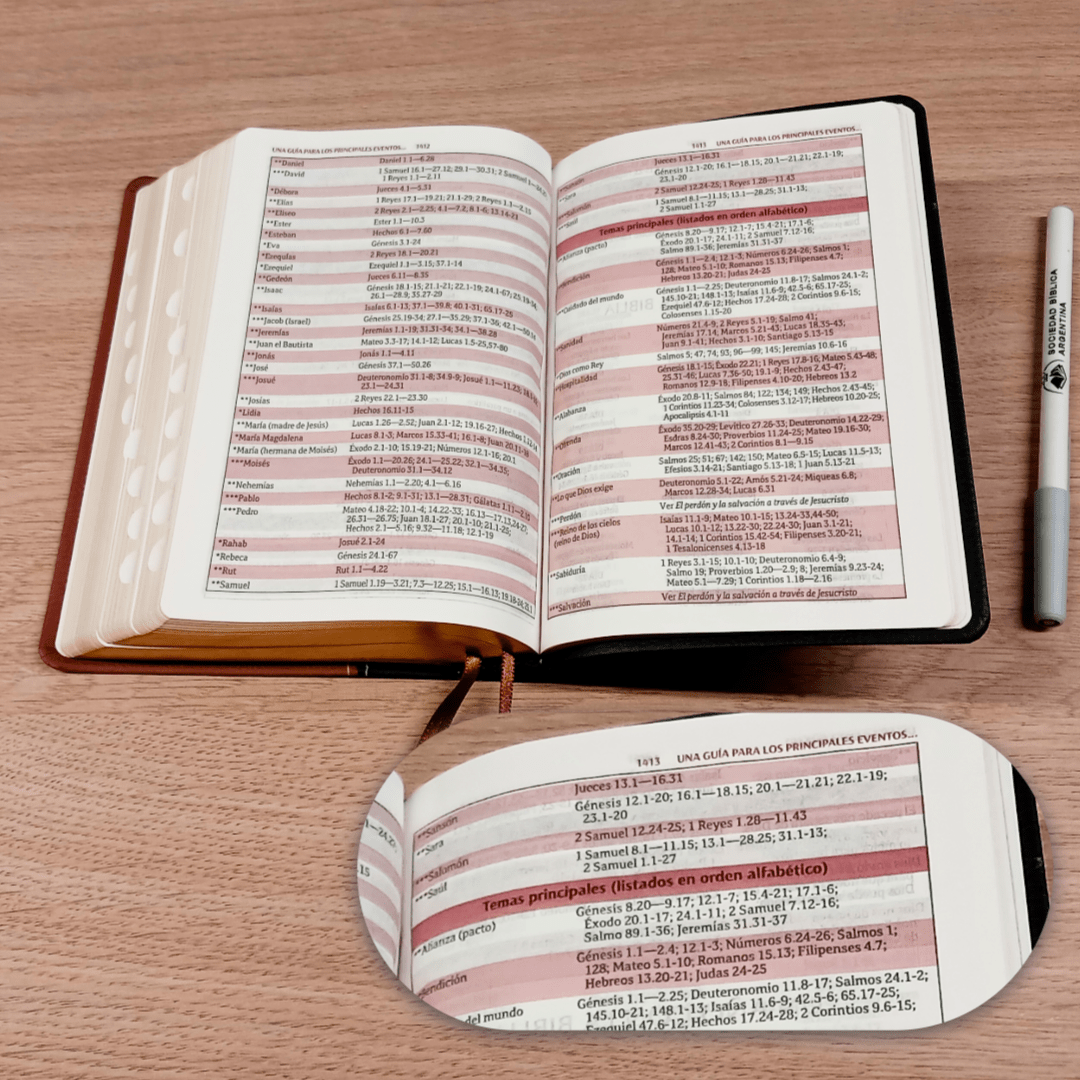 UNA GUÍA PARA LOS PRINCIPALES EVENTOS... 1412
**Daniel Daniel 1.1—6.28
***David 1 Samuel 16.1—27.12; 29.1—30.31; 2 Samuel
1 Reyes 1.1—2.11
*Débora Jueces 4.1—5.31
**Elías 1 Reyes 17.1—19.21; 21.1-29; 2 Reyes 1.1—2.15
**Eliseo 2 Reyes 2.1—2.25; 4.1—7.2; 8.1-6; 13.14-21
**Ester Ester 1.1—10.3
*Esteban Hechos 6.1—7.60
*Eva Génesis 3.1-24
*Ezequías 2 Reyes 18.1—20.21
*Ezequiel Ezequiel 1.1—3.15; 37.1-14
**Gedeón Jueces 6.11—8.35
**Isaac Génesis 18.1-15; 21.1-21; 22.1-19; 24.1-67; 25.19-34;
26.1—28.9; 35.27-29
**Isaías Isaías 6.1-13; 37.1—39.8; 40.1-31; 65.17-25
***Jacob (Israel) Génesis 25.19-34; 27.1—35.29; 37.1-36; 42.1—50.14
**Jeremías Jeremías 1.1-19; 31.31-34; 34.1—38.28
**Juan el Bautista Mateo 3.3-17; 14.1-12; Lucas 1.5-25,57-80
**Jonás Jonás 1.1—4.11
**José Génesis 37.1—50.26
***Josué Deuteronomio 31.1-8; 34.9-9; Josué 1.1—11.23;
23.1—24.31
**Josías 2 Reyes 22.1—23.30
*Lidia Hechos 16.11-15
**María (madre de Jesús) Lucas 1.26—2.52; Juan 2.1-12; 19.16-27; Hechos 1.12-14
*María Magdalena Lucas 8.1-3; Marcos 15.33-41; 16.1-8; Juan 20.11-18
*María (hermana de Moisés) Éxodo 2.1-10; 15.19-21; Números 12.1-16; 20.1
***Moisés Éxodo 1.1—20.26; 24.1—25.22; 32.1—34.35;
Deuteronomio 31.1—34.12
**Nehemías Nehemías 1.1—2.20; 4.1—6.16
***Pablo Hechos 8.1-2; 9.1-31; 13.1—28.31; Gálatas 1.11—2.15
***Pedro Mateo 4.18-22; 10.1-4; 14.22-33; 16.13—17.13,24-27;
26.31—26.75; Juan 18.1-27; 20.1-10; 21.1-25;
Hechos 2.1—5.16; 9.32—11.18; 12.1-19
*Rahab Josué 2.1-24
*Rebeca Génesis 24.1-67
**Rut Rut 1.1—4.22
**Samuel 1 Samuel 1.19—3.21; 7.3—12.25; 15.1—16.13; 19.18-24;
1413 UNA GUÍA PARA LOS PRINCIPALES EVENTOS...
**Sansón Jueces 13.1—16.31
**Sara Génesis 12.1-20; 16.1—18.15; 20.1—21.21; 22.1-19;
23.1-20
***Salomón 2 Samuel 12.24-25; 1 Reyes 1.28—11.43
***Saúl 1 Samuel 8.1—11.15; 13.1—28.25; 31.1-13;
2 Samuel 1.1-27
Temas principales (listados en orden alfabético)
**Alianza (pacto) Génesis 8.20—9.17; 12.1-7; 15.4-21; 17.1-6;
Éxodo 20.1-17; 24.1-11; 2 Samuel 7.12-16;
Salmo 89.1-36; Jeremías 31.31-37
Génesis 1.1—2.4; 12.1-3; Números 6.24-26; Salmos 1;
128; Mateo 5.1-10; Romanos 15.13; Filipenses 4.7;
Hebreos 13.20-21; Judas 24-25
**Cuidado del mundo Génesis 1.1—2.25; Deuteronomio 11.8-17; Salmos 24.1-2;
145.10-21; 148.1-13; Isaías 11.6-9; 42.5-6; 65.17-25;
Ezequiel 47.6-12; Hechos 17.24-28; 2 Corintios 9.6-15;
Colosenses 1.15-20
**Sanidad Números 21.4-9; 2 Reyes 5.1-19; Salmo 41;
Jeremías 17.14, Marcos 5.21-43; Lucas 18.35-43;
Juan 9.1-41; Hechos 3.1-10; Santiago 5.13-15
**Dios como Rey Salmos 5; 47; 74; 93; 96—99; 145; Jeremías 10.6-16
**Hospitalidad Génesis 18.1-15; Éxodo 22.21; 1 Reyes 17.8-16; Mateo 5.43-48;
25.31-46; Lucas 7.36-50; 19.1-9; Hechos 2.43-47;
Romanos 12.9-18; Filipenses 4.10-20; Hebreos 13.2
**Alabanza Éxodo 20.8-11; Salmos 84; 122; 134; 149; Hechos 2.43-45;
1 Corintios 11.23-34; Colosenses 3.12-17; Hebreos 10.20-25;
Apocalipsis 4.1-11
**Ofrenda Éxodo 35.20-29; Levítico 27.26-33; Deuteronomio 14.22-29;
Esdras 8.24-30; Proverbios 11.24-25; Mateo 19.16-30;
Marcos 12.41-43; 2 Corintios 8.1—9.15
**Oración Salmos 25; 51; 67; 142; 150; Mateo 6.5-15; Lucas 11.5-13;
Efesios 3.14-21; Santiago 5.13-18; 1 Juan 5.13-21
**Lo que Dios exige Deuteronomio 5.1-22; Amós 5.21-24; Miqueas 6.8;
Marcos 12.28-34; Lucas 6.31
***Perdón Ver El perdón y la salvación a través de Jesucristo
***Reino de los cielos Isaías 11.1-9; Mateo 10.1-15; 13.24-33,44-50;
(reino de Dios) Lucas 10.1-12; 13.22-30; 22.24-30; Juan 3.1-21;
14.1-14; 1 Corintios 15.42-54; Filipenses 3.20-21;
1 Tesalonicenses 4.13-18
**Sabiduría 1 Reyes 3.1-15; 10.1-10; Deuteronomio 6.4-9;
Salmo 19; Proverbios 1.20—2.9; 8; Jeremías 9.23-24;
Mateo 5.1—7.29; 1 Corintios 1.18—2.16
***Salvación Ver El perdón y la salvación a través de Jesucristo
SOCIEDAD BÍBLICA
ARGENTINA
1413 UNA GUÍA PARA LOS PRINCIPALES EVENTOS...
**Sansón Jueces 13.1—16.31
**Sara Génesis 12.1-20; 16.1—18.15; 20.1—21.21; 22.1-19;
23.1-20
***Salomón 2 Samuel 12.24-25; 1 Reyes 1.28—11.43
***Saúl 1 Samuel 8.1—11.15; 13.1—28.25; 31.1-13;
2 Samuel 1.1-27
Temas principales (listados en orden alfabético)
**Alianza (pacto) Génesis 8.20—9.17; 12.1-7; 15.4-21; 17.1-6;
Éxodo 20.1-17; 24.1-11; 2 Samuel 7.12-16;
Salmo 89.1-36; Jeremías 31.31-37
endición Génesis 1.1—2.4; 12.1-3; Números 6.24-26; Salmos 1;
128; Mateo 5.1-10; Romanos 15.13; Filipenses 4.7;
Hebreos 13.20-21; Judas 24-25
del mundo Génesis 1.1—2.25; Deuteronomio 11.8-17; Salmos 24.1-2;
145.10-21; 148.1-13; Isaías 11.6-9; 42.5-6; 65.17-25;
Ezequiel 47.6-12; Hechos 17.24-28; 2 Corintios 9.6-15;